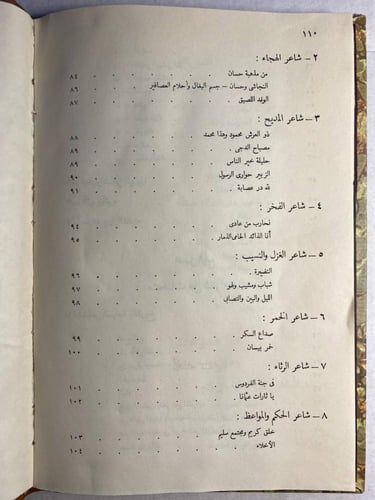 ١١٠
٢ – شاعر الهجاء :
من مذهبة حسان . . . . . . ٨٤
النجاشى وحسان – جسم البغال وأحلام العصافير . . . ٨٦
الوفد اللصيق . . . . . . ٨٧
٣ – شاعر المديح :
ذو العرش محمود وهذا محمد . . . . . ٨٨
مصباح الدجى . . . . . . ٨٩
حليلة خير الناس . . . . . . ٨٩
الزبير حوارى الرسول . . . . . . ٩٠
لله در عصابة . . . . . . ٩١
٤ – شاعر الفخر :
نحارب من عادى . . . . . . ٩٤
أنا الذائد الحامى الذمار . . . . . . ٩٥
٥ – شاعر الغزل والنسيب :
النضيرة . . . . . . ٩٦
شباب ومشيب ولهو . . . . . . ٩٧
الليل والبين والتصابى . . . . . . ٩٨
٦ – شاعر الخمر :
صداع السكر . . . . . . ٩٩
خمر بيسان . . . . . . ١٠٠
٧ – شاعر الرثاء :
فى جنة الفردوس . . . . . . ١٠١
يا ثارات عثمانا . . . . . . ١٠٢
٨ – شاعر الحكم والمواعظ :
خلق كريم ومجتمع سليم . . . . . ١٠٣
الأخلاء . . . . . . ١٠٤